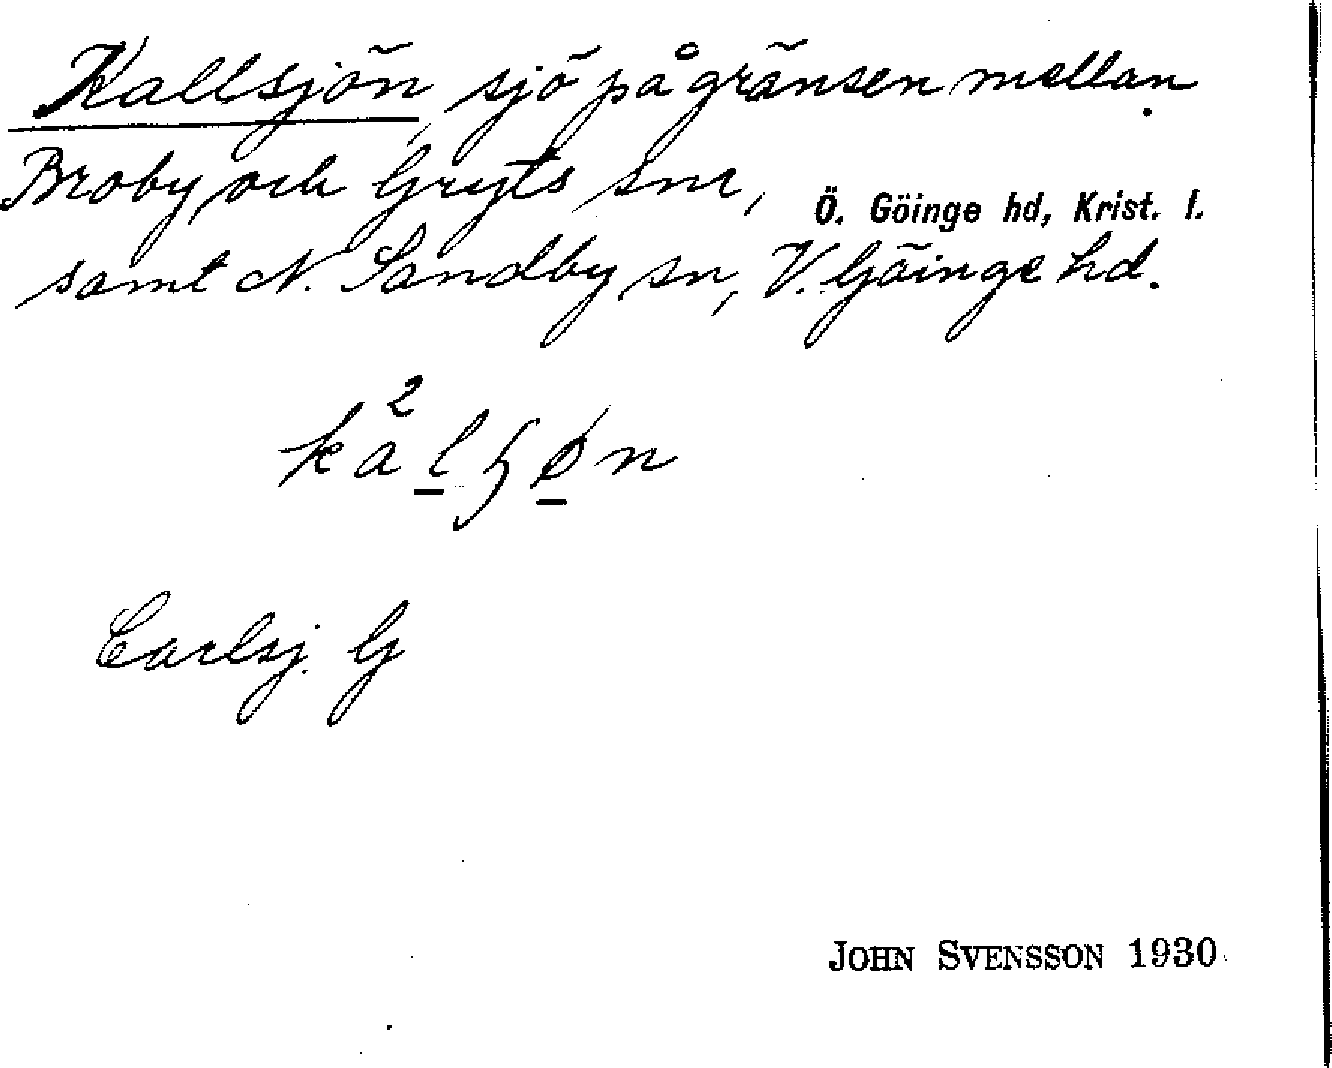 Kallsjön, sjö på gränsen mellan
Broby och Gryts snr, Ö. Göinge hd, Krist. l.
samt N. Sandby sn, V. Göinge hd.
2
kalɧøn
Carlsj. G
JOHN SVENSSON 1930